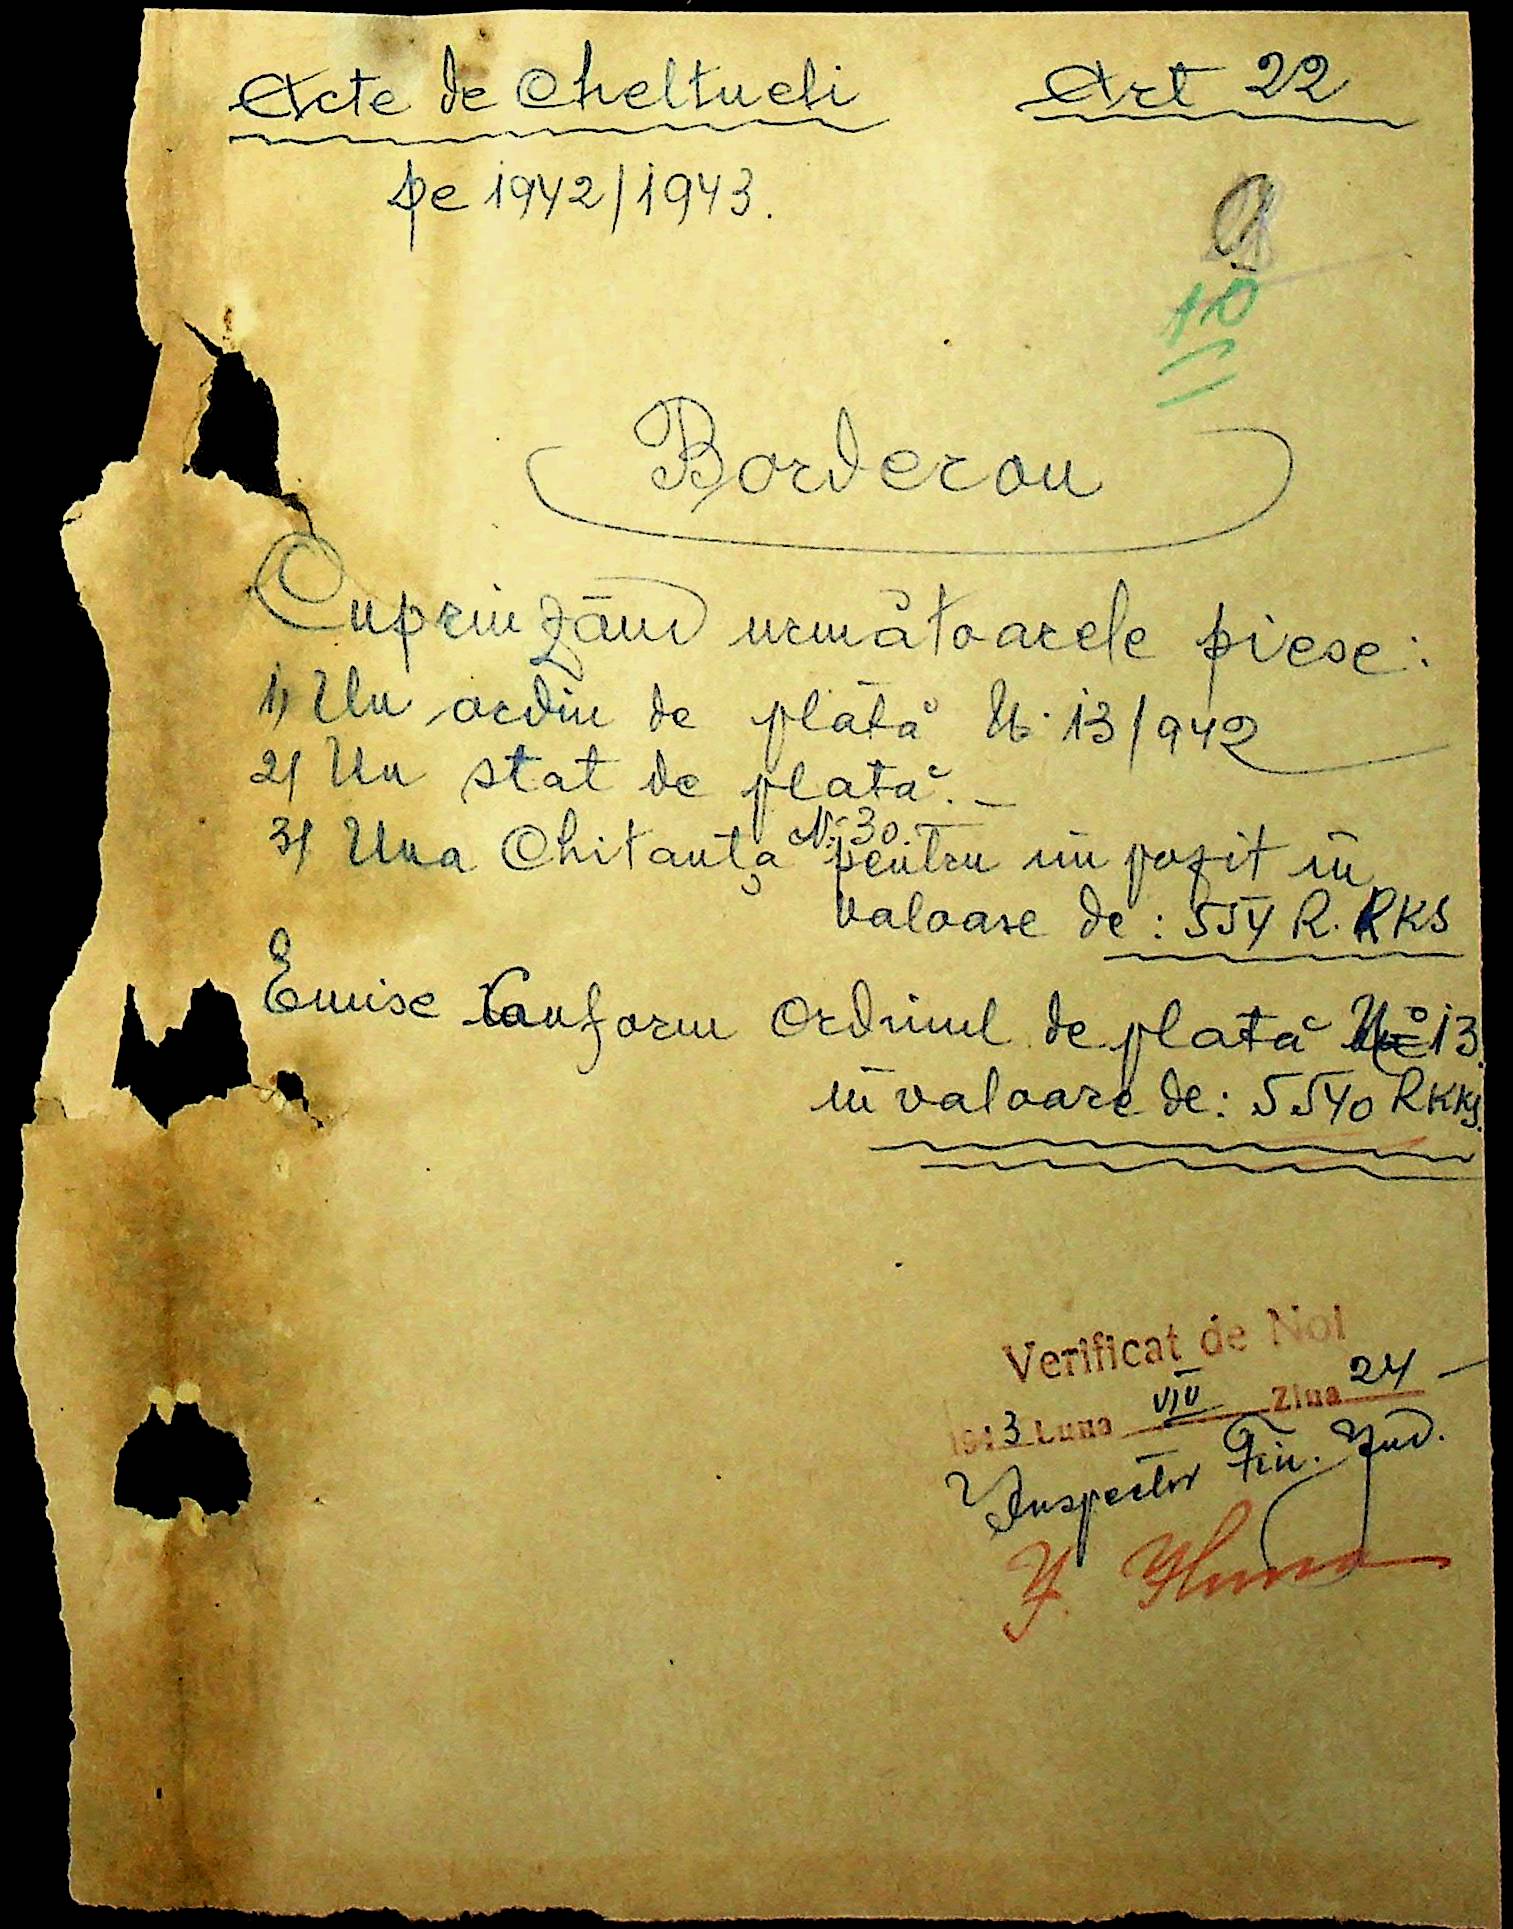 Acte de Cheltueli Art 22
pe 1942/1943.
10
Borderou
Cuprinzând următoarele piese:
1) Un ordin de plată № 13/942
2) Un stat de plată. —
3) Una Chitanța Nr. 30. pentru impozit în
valoare de: 554 R. RKS
Emise Conform Ordinul de plată № 13.
in valoare de: 5540 RKKS.
Verificat de Noi
1943 Luna VIII Ziua 24 —
Inspector Fin. Jud.